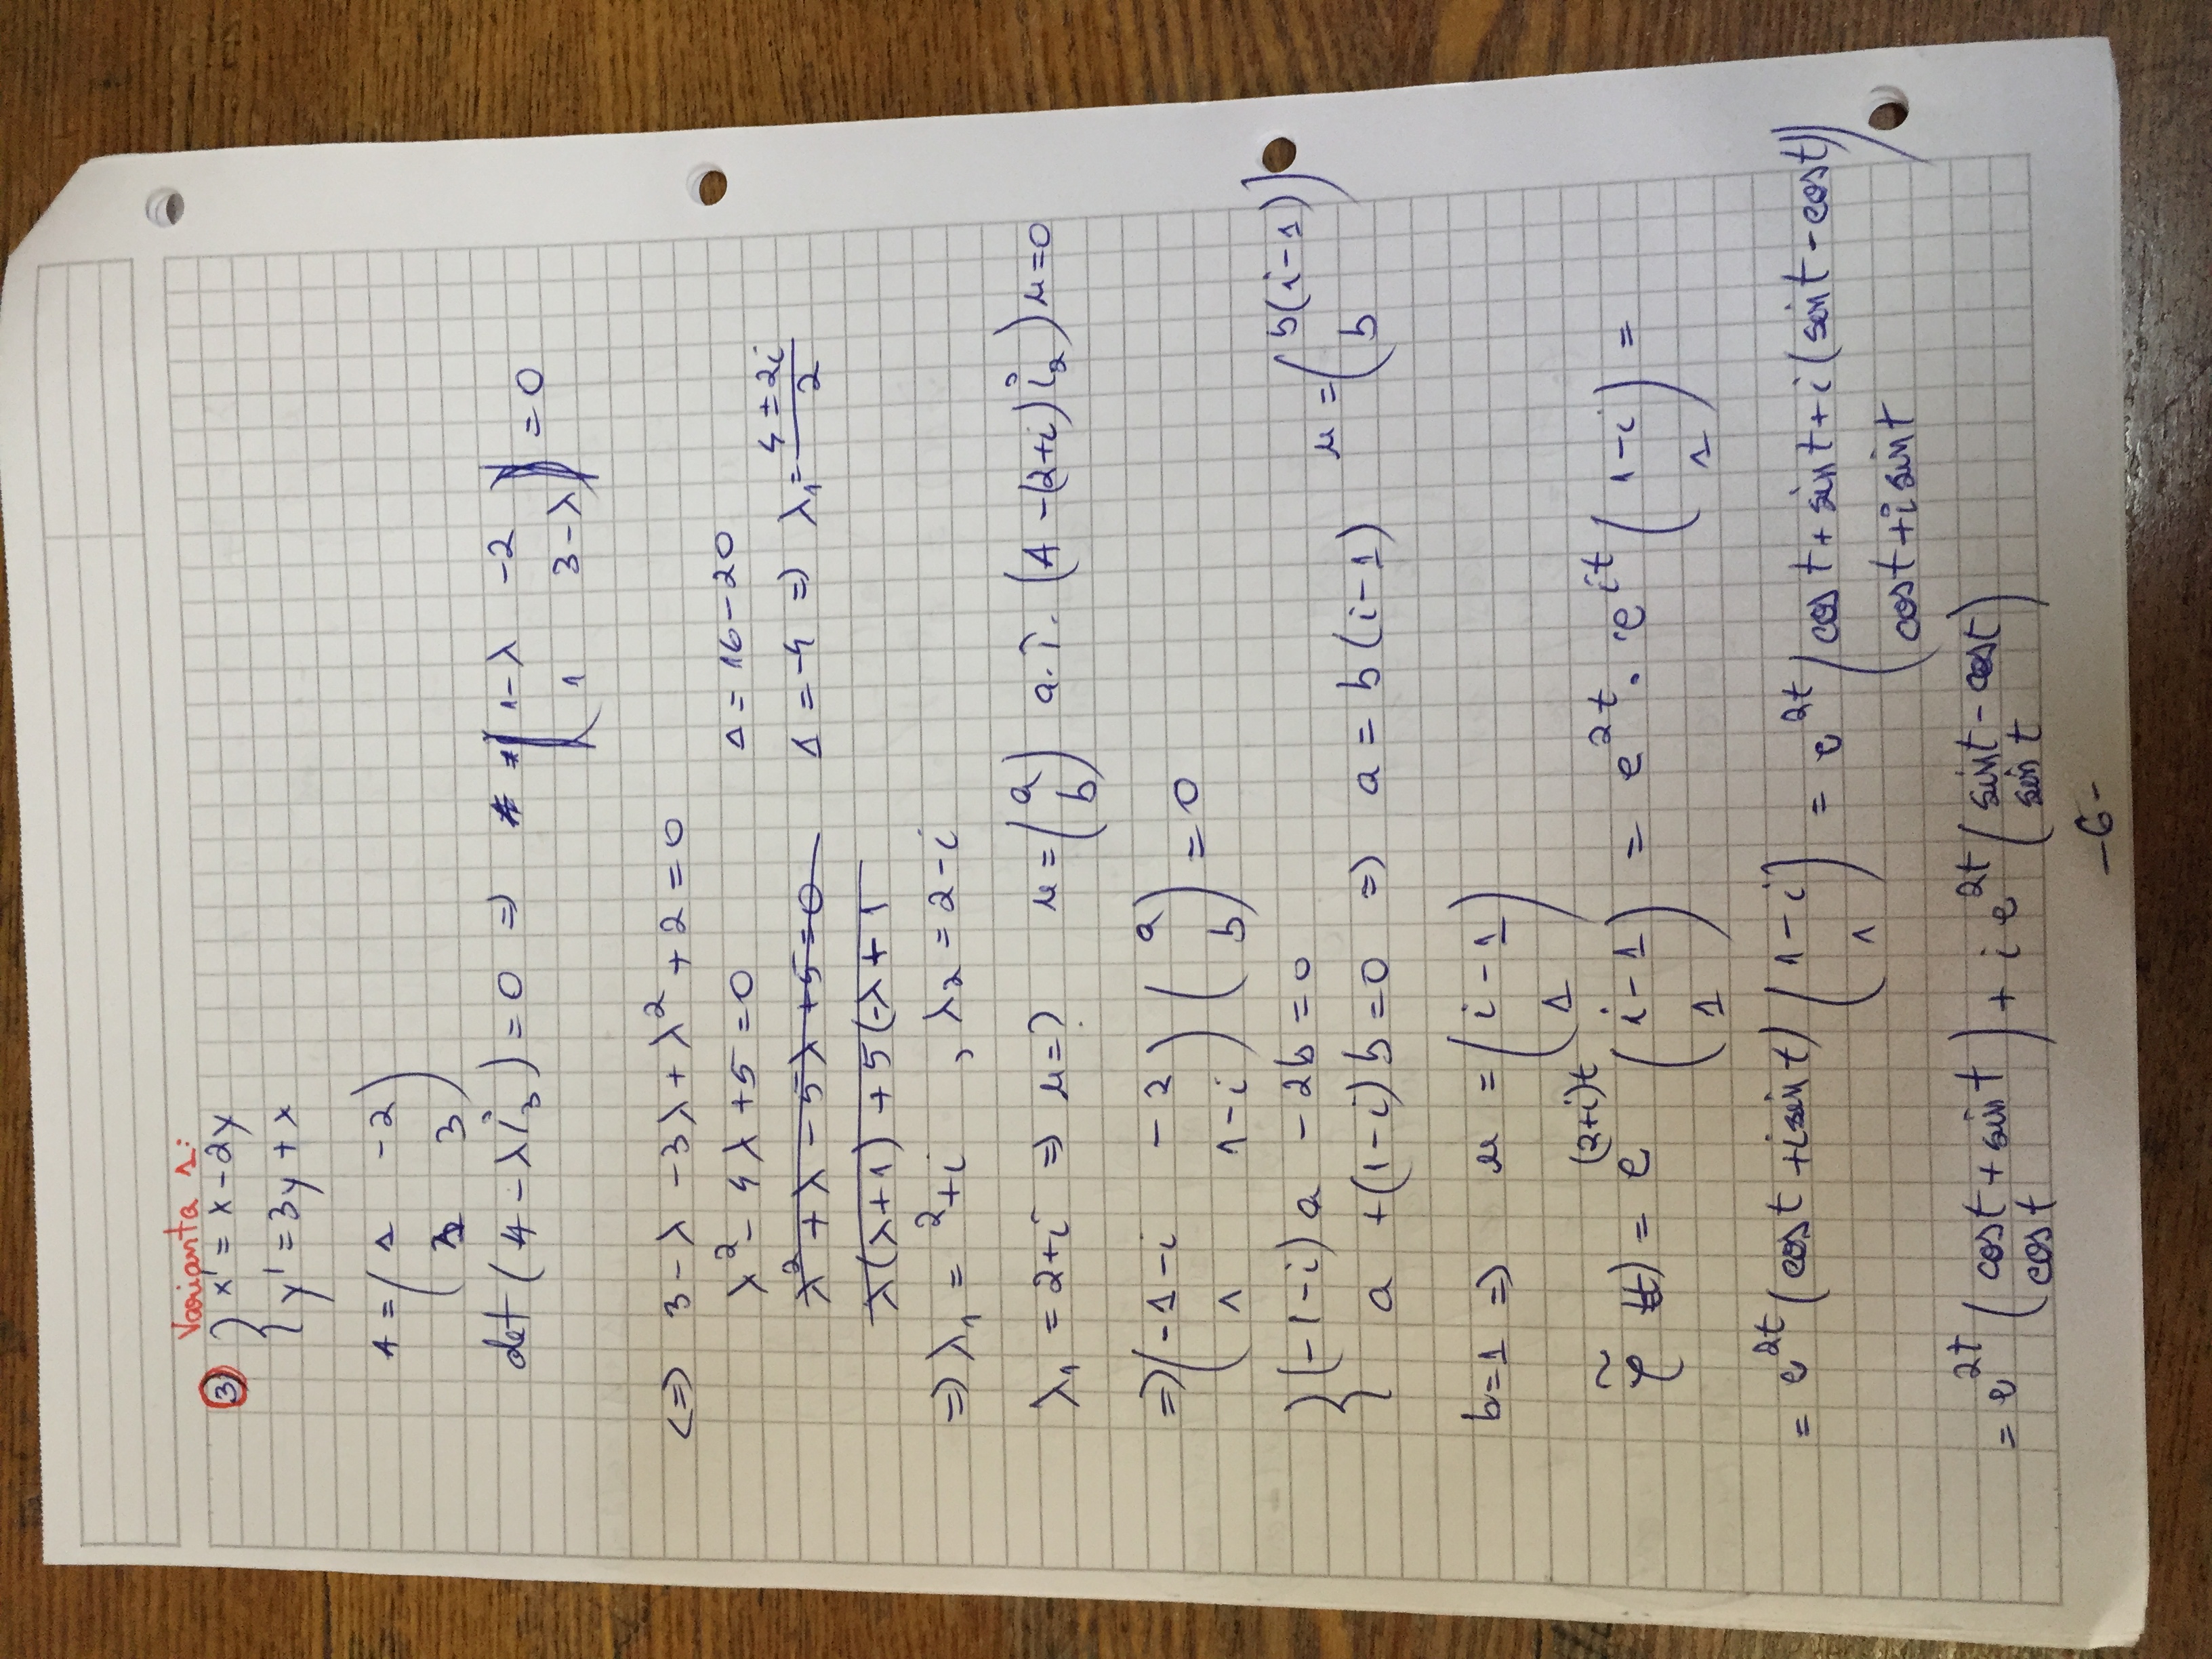 Varianta 1:
3) { x' = x - 2y
y' = 3y + x
A = ( 1 -2
1 3 )
det (A - λi₃) = 0 => | 1-λ -2
1 3-λ | = 0
<=> 3 - λ - 3λ + λ² + 2 = 0
λ² - 4λ + 5 = 0 Δ = 16 - 20
λ² + λ - 5λ + 5 = 0 Δ = -4 => λ₁ = (4 ± 2i)/2
λ(λ+1) + 5(-λ + 1
=> λ₁ = 2+i , λ₂ = 2-i
λ₁ = 2+i => u = ? u = ( a
b ) a.î. (A - (2+i) i₂) u = 0
=> ( -1-i -2
1 1-i ) ( a
b ) = 0
{ (-1-i) a - 2b = 0
a + (1-i) b = 0 => a = b (i-1) u = ( b(i-1)
b )
b=1 => u = ( i-1
1 )
φ̃ (t) = e^(2+i)t ( i-1
1 ) = e^2t · e^it ( 1-i
1 ) =
= e^2t (cos t + i sin t) ( 1-i
1 ) = e^2t ( cos t + sin t + i (sin t - cos t)
cos t + i sin t )
= e^2t ( cos t + sin t
cos t ) + i e^2t ( sin t - cos t
sin t )
-6-